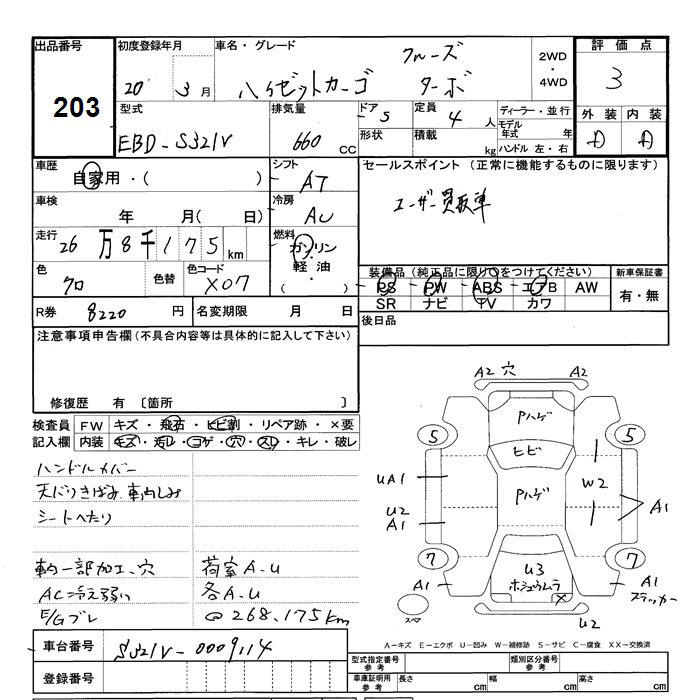 出品番号 初度登録年月 車名・グレード 評価点
203
20 3月
クルーズ
ハイゼットカーゴ ターボ
2WD
・
4WD
3
型式 排気量 ドア 5 定員 4人 ディーラー・並行 外装 内装
EBD-S321V 660cc
形状 積載 kg モデル年式 年
ハンドル 左・右
車歴 自家用・( ) シフト AT
セールスポイント(正常に機能するものに限ります)
ユーザー買取車
車検 年 月( 日) 冷房 AC
走行 26万8千175km 燃料 ガソリン・軽油・( )
色 クロ 色替 色コード X07
装備品(純正品に限り○をつけてください) 新車保証書
PS PW ABS エアB AW 有・無
SR ナビ TV カワ
R券 8220円 名変期限 月 日
後日品
注意事項申告欄(不具合内容等は具体的に記入して下さい)
修復歴 有 〔箇所 〕
検査員 FW キズ・飛石・ヒビ割・リペア跡・×要
記入欄 内装 キズ・汚レ・コゲ・穴・スレ・キレ・破レ
ハンドルカバー
天バリきばみ、車内しみ
シートへたり
一部加工、穴 荷室A・U
AC冷え弱い 各A・U
E/Gブレ @268,175km
車台番号 S321V-0009114
登録番号
A2 穴 A2
Pハゲ
5 5
ヒビ
UA1 W2
Pハゲ
U2
A1 A1
7 7
U3
ホシュウムラ
X
A1 A1
ステッカー
スペア
U2
A-キズ E-エクボ U-凹み W-補修跡 S-サビ C-腐食 XX-交換済
型式指定番号 参考 類別区分番号 参考
車庫証明用 参考 長さ cm 幅 cm 高さ cm